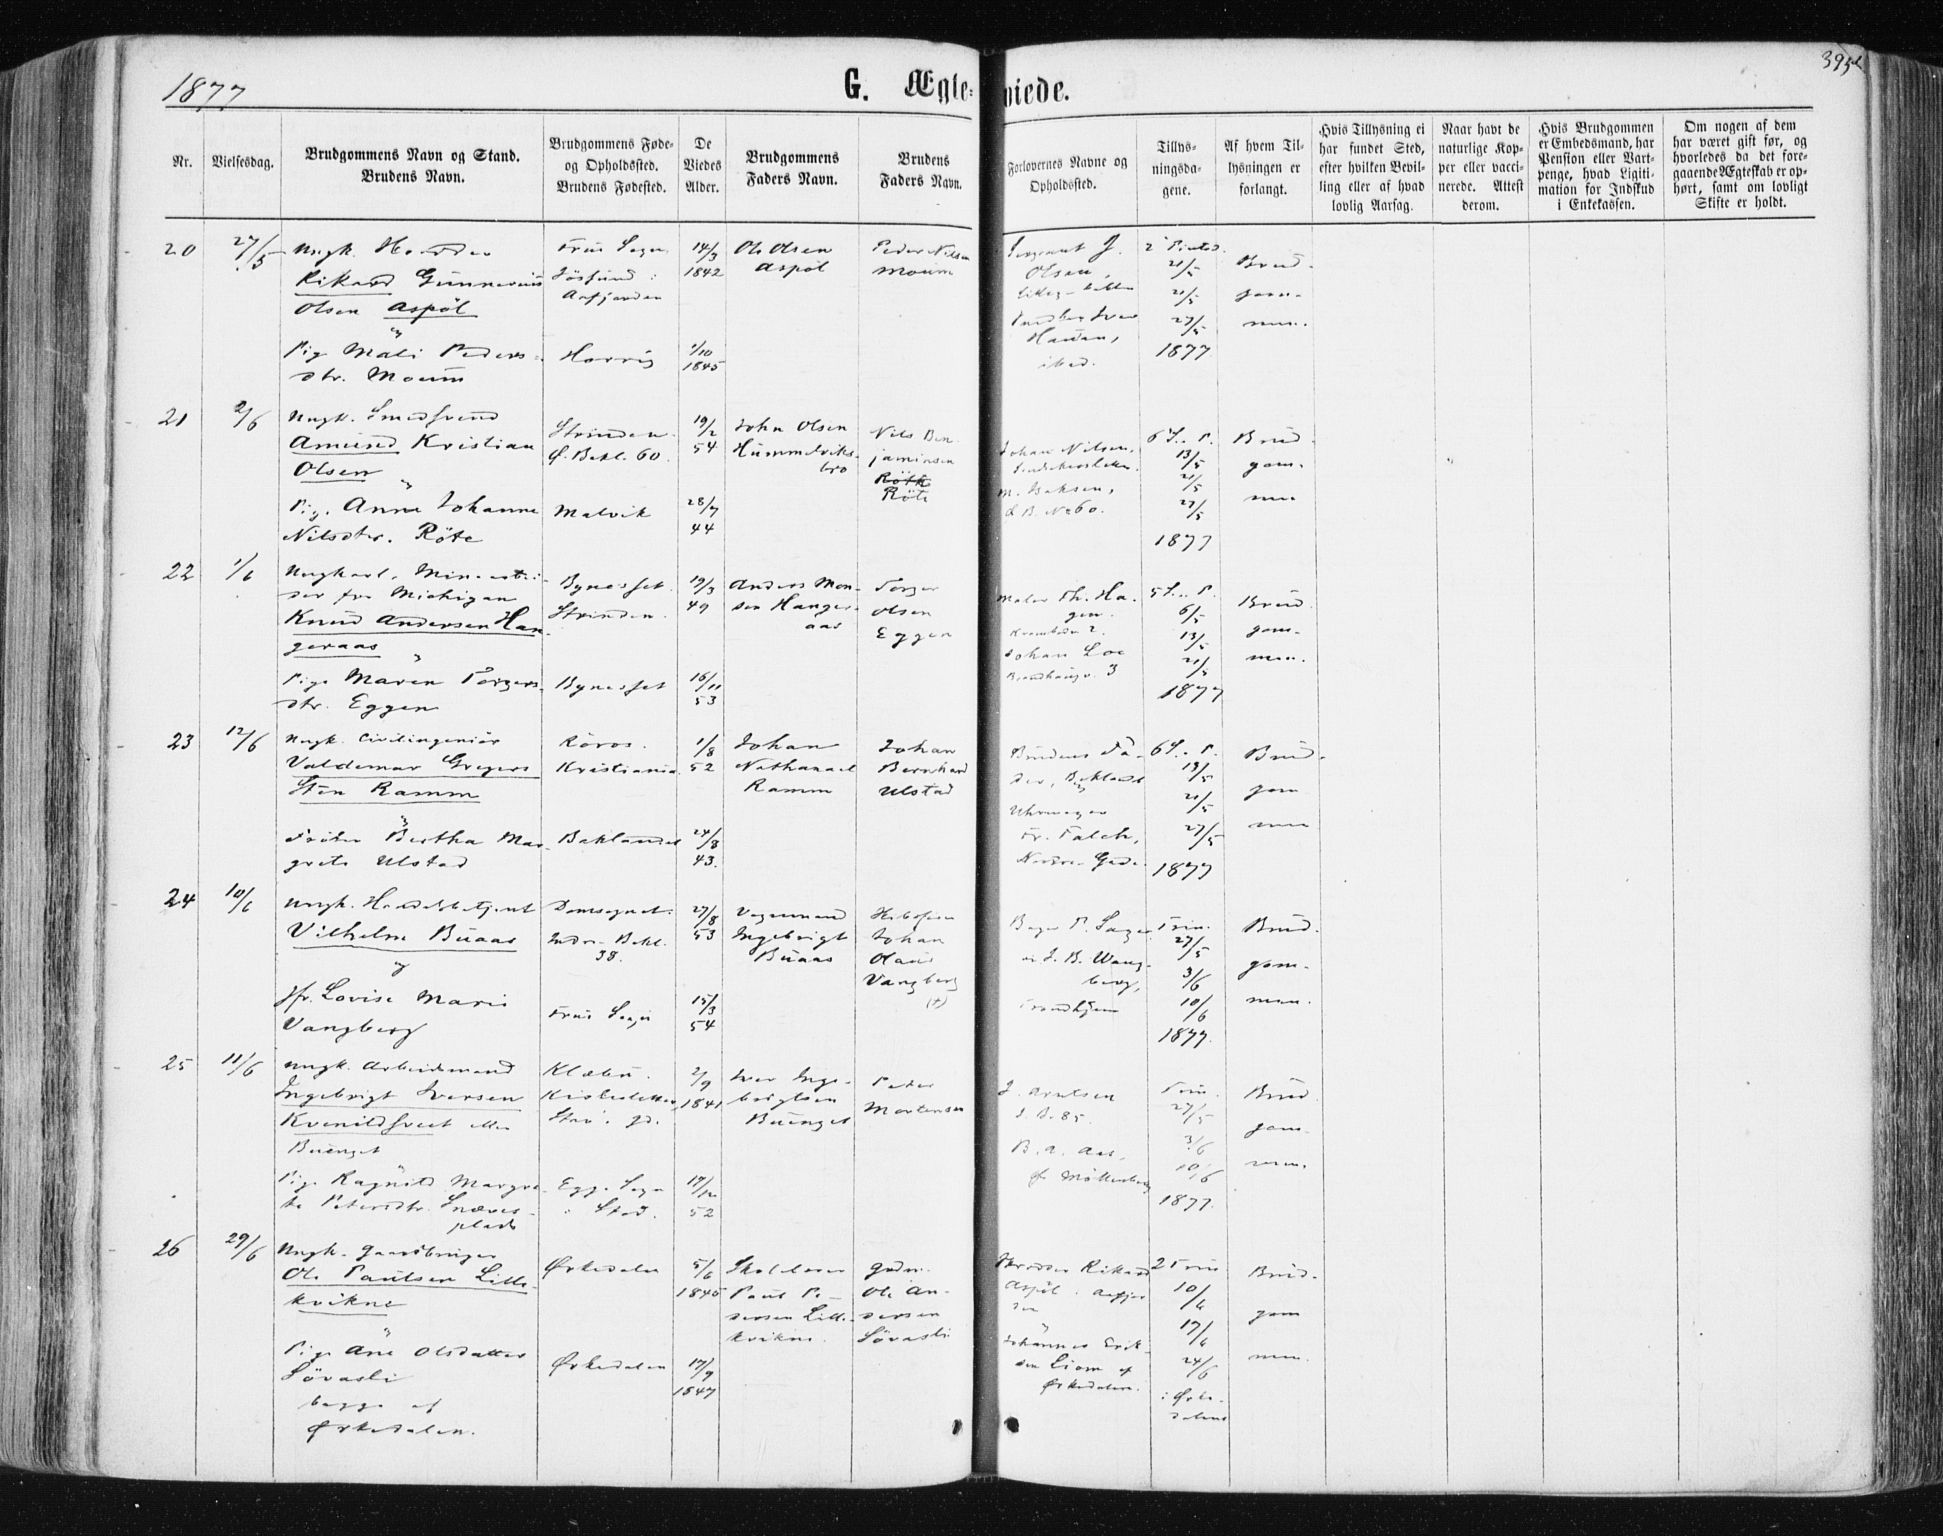 1877
G. Ægte-viede.
395
Nr.
Vielsesdag.
Brudgommens Navn og Stand.
Brudens Navn.
Brudgommens Føde-
og Opholdssted.
Brudens Fødested.
De
Viedes
Alder.
Brudgommens
Faders Navn.
Brudens
Faders Navn.
Forlovernes Navne og
Opholdssted.
Tillys-
ningsda-
gene.
Af hvem Til-
lysningen er
forlangt.
Hvis Tillysning ei
har fundet Sted,
efter hvilken Bevil-
ling eller af hvad
lovlig Aarsag.
Naar havt de
naturlige Kop-
per eller vacci-
nerede. Attest
derom.
Hvis Brudgommen
er Embedsmand, har
Pension eller Vart-
penge, hvad Ligiti-
mation for Indskud
i Enkekassen.
Om nogen af dem
har været gift før, og
hvorledes da det fore-
gaaende Ægteskab er op-
hørt, samt om lovligt
Skifte er holdt.
20
27/5
Ungk.
Rikard Gunnerius
Olsen Aspöl
Pige Mali Peders-
dtr. Moum
Frue Sogn
Jössund i
Aafjorden
Horrig
14/3
1842
1/10
1845
Ole Olsen
Aspöl
Peder Nilsen
Moum
Sergeant J.
Olsen,
Hauan,
ibid.
21/5
27/5
1877
Brud-
gom-
men.
21
2/6
Ungk. Smedsvend
Amund Kristian
Olsen
Pig. Anne Johanne
Nilsdtr. Röte
Strinden.
Ø. Bakl. 60.
Malvik
19/2
54
28/7
44
John Olsen
Hummelviks-
bro
Nils Ben-
jaminsen
Röte
Johan Nilsen,
M. Baksen,
Ø. B. No 60.
6 S. e. P.
13/5
21/5
27/5
1877
Brud-
gom-
men
22
1/6
Ungkarl, Minearbei-
der fra Michigan
Knud Andersen Han-
geraas
Pige Maren Torgers-
dtr. Eggen
Bynesset
Strinden.
Bynesset
19/3
49
16/11
53
Anders Mon-
sen Hanger-
aas
Torger
Olsen
Eggen
Maler Th. Ha-
gen.
Johan Loe
5 S. e. P.
6/5
13/5
21/5
1877
Brud-
gom-
men.
23
12/6
Ungk. Civilingeniör
Valdemar Gregers
Sten Ramm
Fröken Bertha Mar-
grete Ulstad
Röros.
Kristiania
Baklandet
1/8
52
24/8
43.
Johan
Nathanael
Ramm
Johan
Bernhard
Ulstad
Brudens Fa-
der, Baklandet
Uhrmager
Fr. Falch,
Nordre Gade.
6 S. e. P.
13/5
21/5
27/5
1877
Brud-
gom
men
24
10/6
Ungk. Handelsbetjent
Vilhelm Buaas
og
Jfr. Lovise Marie
Vangberg
Domsognet.
Indr. Bakl.
38.
Frue Sogn
27/8
53
15/3
54
Vognmand
Ingebrigt
Buaas
Johan
Olaus
Vangberg
(†)
J. B. Wang-
berg,
Trondhjem
Trin.
27/5
3/6
10/6
1877.
Brud-
gom-
men.
25
11/6
Ungk. Arbeidsmand
Ingebrigt Iversen
Kvenildsveet eller
Buenget
Pige Ragnild Margre-
te Petersdtr. Snæres-
plads
Klæbu.
Egge Sogn
i Stod.
2/9
1841
17/12
52
Iver Inge-
brigtsen
Buenget
Peter
Mortensen
J. Arntsen
B. A. Aas,
Trin.
27/5
3/6
10/6
1877.
Brud-
gom-
men.
26
29/6
Ungk. Gaardbruger
Ole Paulsen Lille-
kvikne
Pige Ane Olsdatter
Lövasli
begge af
Ørkedalen.
Ørkedalen
Ørkedalen
5/6
1845
17/9
1847
Skolelærer
Paul Pe-
dersen Lille-
kvikne.
Gdm.
Ole An-
dersen
Lövasli
Rikard
Aspöl i Aafjor-
den
Johannes Erik-
sen Eiom af
Ørkedalen.
2 Trin
10/6
17/6
24/6
i Ørke-
dalen
Brud-
gom
men.